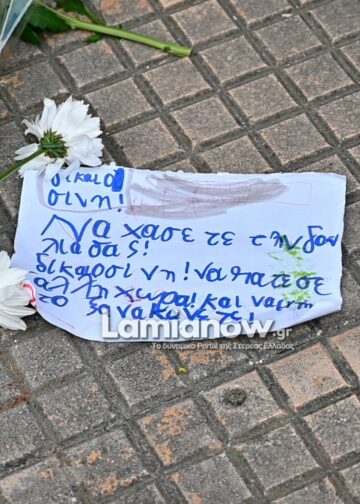 δικαιο
σινη!
Να χασε τε τηνδου
λιασας!
δικαροσινη! να πατεσε
αλλη χωρα! και να μην
το ξανακανετε!
Lamianow.gr
Το δυναμικό Portal της Στερεάς Ελλάδας